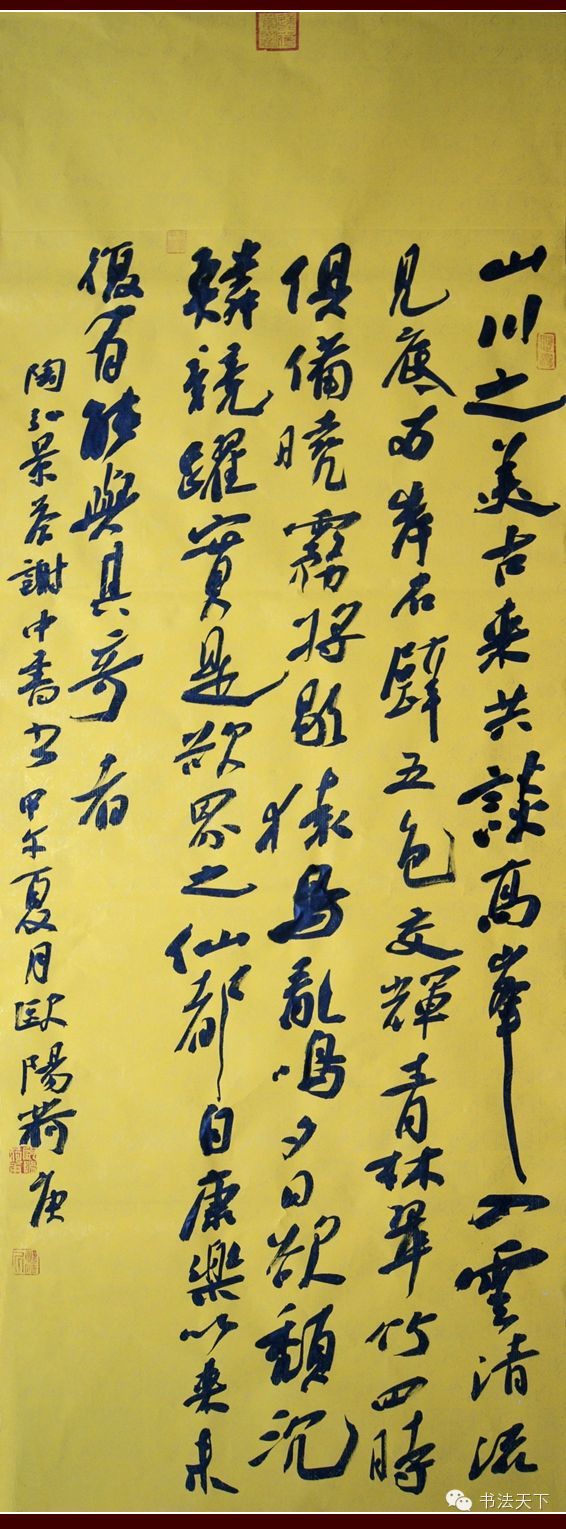 山川之美古来共談高峯入雲清流
見底两岸石壁五色交輝青林翠竹四時
俱備曉霧将歇猿鳥亂鳴夕日欲頹沉
鱗競躍實是欲界之仙都自康樂以来未
復有能與其奇者
陶弘景答謝中書书甲午夏月歐陽荷庚
书法天下